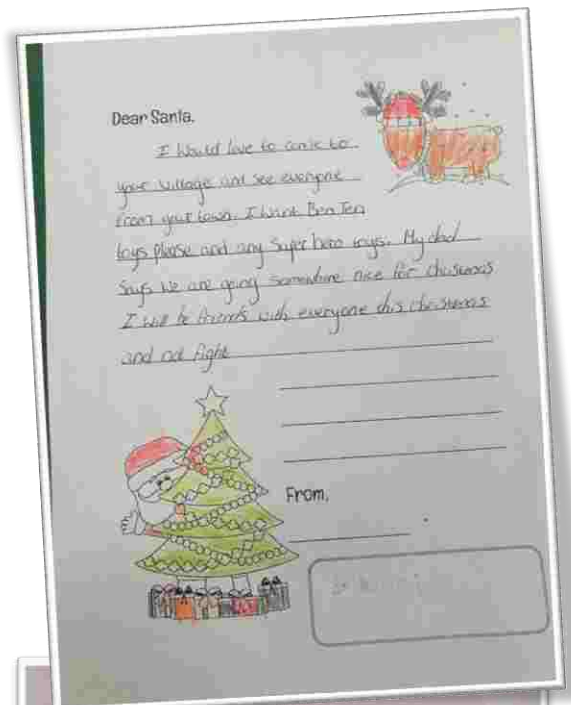 Dear Santa,
I would love to come to
your village and see everyone
from your town. I want Ben Ten
toys please and any super hero toys. My dad
says we are going somewhere nice for christmas
I will be friends with everyone this christmas
and not fight
From,